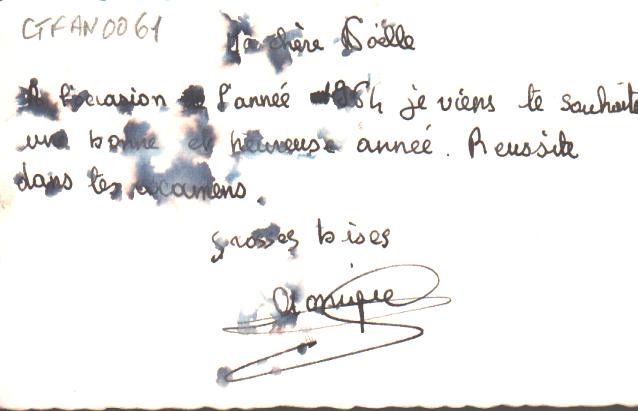 CTFAN0061
Ma chère Noëlle
A l'occasion de l'année 1964 je viens te souhaite
une bonne et heureuse année. Reussite
dans tes examens.
Grosses bises
Dominique